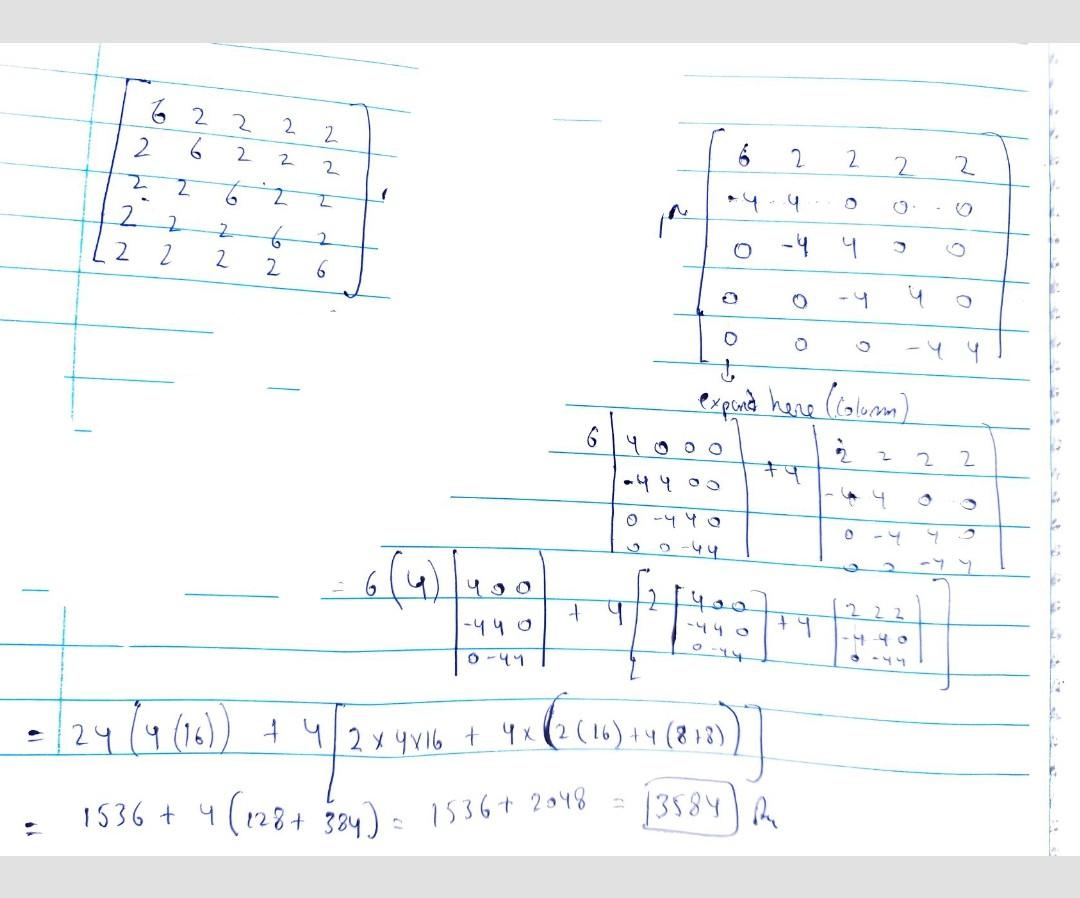 6 2 2 2 2
2 6 2 2 2
2 2 6 2 2
2 2 2 6 2
2 2 2 2 6
~
6 2 2 2 2
-4 4 0 0 0
0 -4 4 0 0
0 0 -4 4 0
0 0 0 -4 4
↓
expand here (Column)
6 | 4 0 0 0 | + 4 | 2 2 2 2 |
| -4 4 0 0 | | -4 4 0 0 |
| 0 -4 4 0 | | 0 -4 4 0 |
| 0 0 -4 4 | | 0 0 -4 4 |
= 6 (4) | 4 0 0 | + 4 [ 2 [ 4 0 0 ] + 4 | 2 2 2 | ]
| -4 4 0 | [ -4 4 0 ] | -4 4 0 |
| 0 -4 4 | [ 0 -4 4 ] | 0 -4 4 |
= 24 (4 (16)) + 4 [ 2 x 4 x 16 + 4 x (2 (16) + 4 (8+8)) ]
= 1536 + 4 (128 + 384) = 1536 + 2048 = 3584